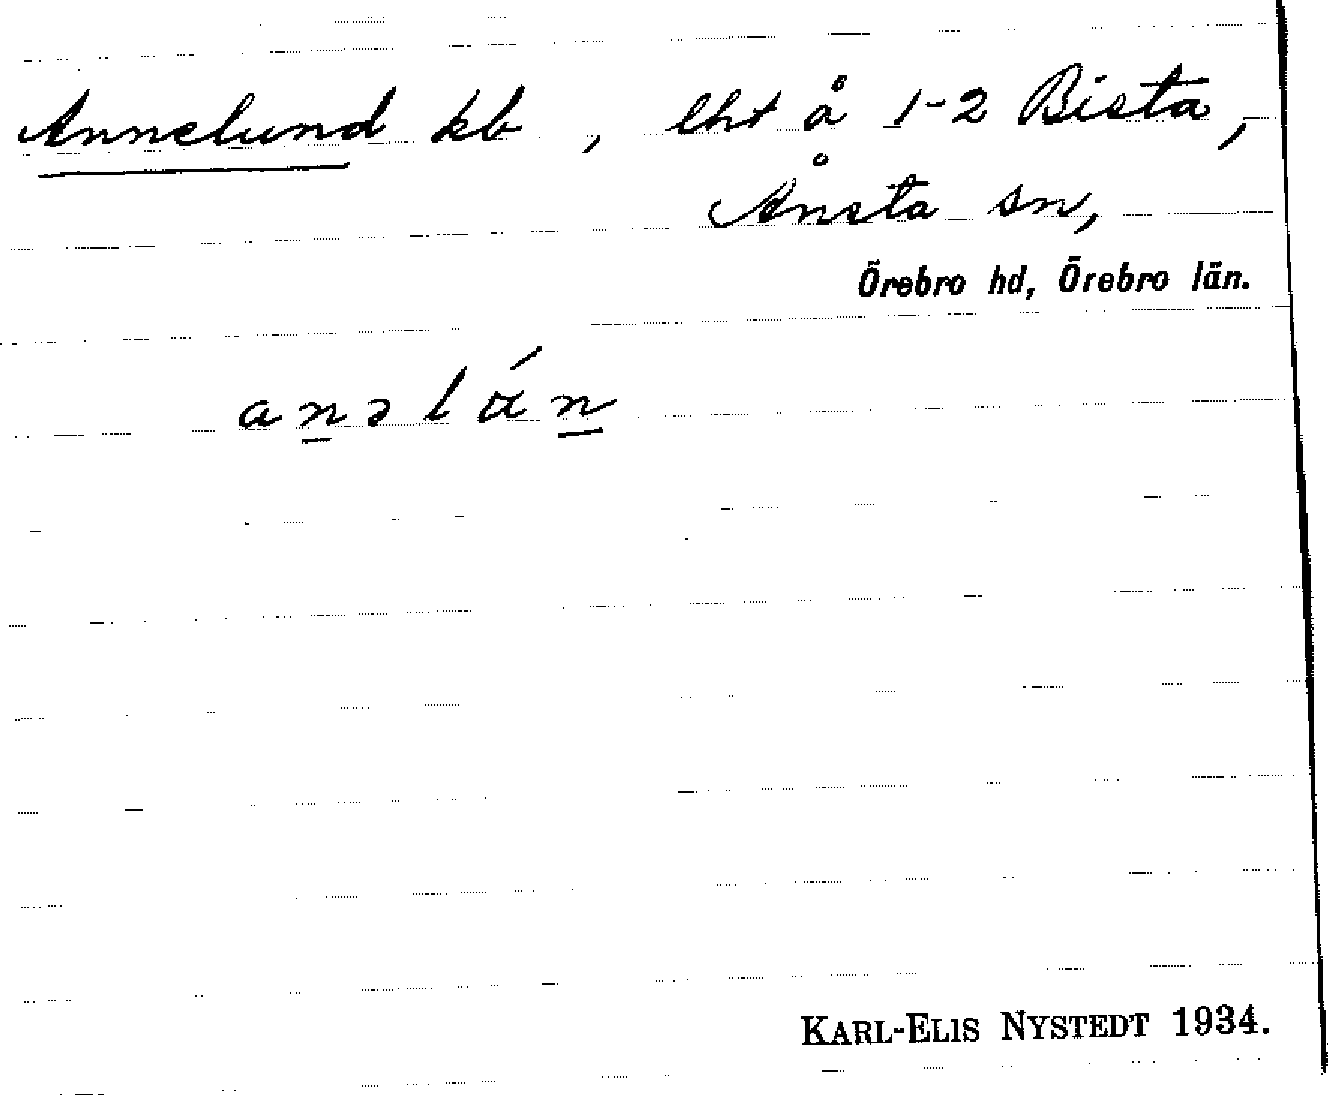 Annelund kb, lht å 1-2 Bista,
Ånsta sn,
Örebro hd, Örebro län.
anəlán
KARL-ELIS NYSTEDT 1934.